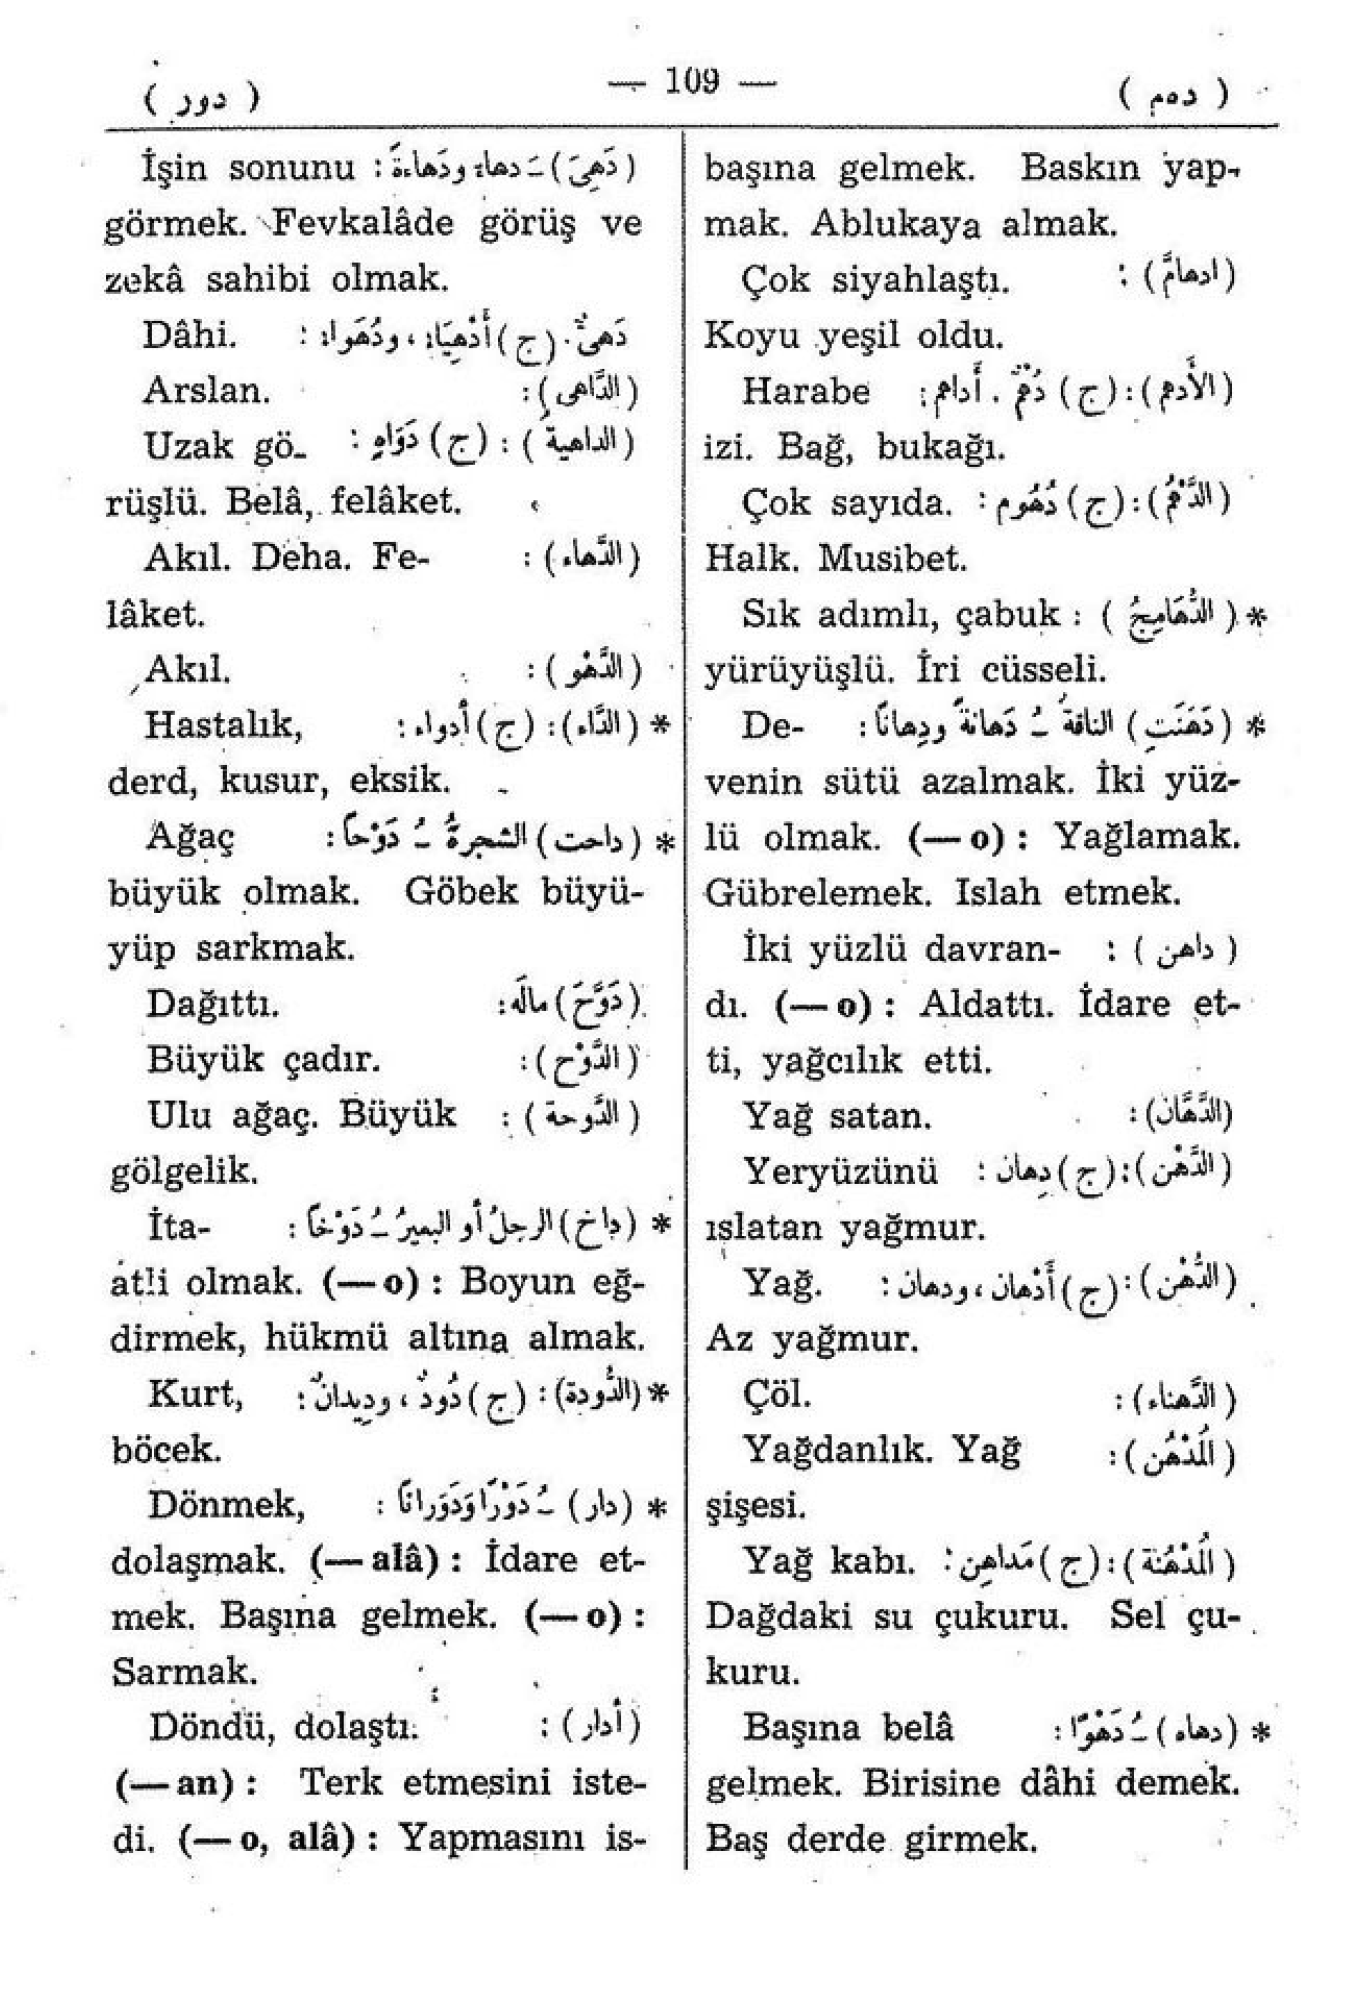 ( دهم ) — 109 — ( دور )
başına gelmek. Baskın yap-
mak. Ablukaya almak.
(ادهامَّ) : Çok siyahlaştı.
Koyu yeşil oldu.
(الأَدهم) : (ج) دُهْمٌ . أَداهم : Harabe
izi. Bağ, bukağı.
(الدَّهْمُ) : (ج) دُهُوم : Çok sayıda.
Halk. Musibet.
* ( الدُّهَامِجُ ) : Sık adımlı, çabuk
yürüyüşlü. İri cüsseli.
* (دَهَنَتِ) الناقةُ ـُ دَهانةً ودِهانًا : De-
venin sütü azalmak. İki yüz-
lü olmak. (— o) : Yağlamak.
Gübrelemek. Islah etmek.
( داهن ) : İki yüzlü davran-
dı. (— o) : Aldattı. İdare et-
ti, yağcılık etti.
(الدَّهَّان) : Yağ satan.
(الدَّهْن) : (ج) دِهان : Yeryüzünü
ıslatan yağmur.
(الدُّهْن) : (ج) أَدْهان ، ودهان : Yağ.
Az yağmur.
(الدَّهناء) : Çöl.
(المُدْهُن) : Yağdanlık. Yağ
şişesi.
(المُدْهُنَة) : (ج) مَداهِن : Yağ kabı.
Dağdaki su çukuru. Sel çu-
kuru.
* (دهاه) ـُ دَهْوًا : Başına belâ
gelmek. Birisine dâhi demek.
Baş derde girmek.
(دَهِيَ) ـَ دهاء ودَهاءةً : İşin sonunu
görmek. Fevkalâde görüş ve
zekâ sahibi olmak.
دَهىٌّ . (ج) أَدْهِيَاء ، ودُهَواء : Dâhi.
(الدَّاهى) : Arslan.
(الداهية) : (ج) دَوَاهٍ : Uzak gö-
rüşlü. Belâ, felâket.
(الدَّهاء) : Akıl. Deha. Fe-
lâket.
(الدَّهْو) : Akıl.
* (الدَّاء) : (ج) أَدواء : Hastalık,
derd, kusur, eksik.
* (داحت) الشجرةُ ـُ دَوْحاً : Ağaç
büyük olmak. Göbek büyü-
yüp sarkmak.
(دَوَّحَ) مالَه : Dağıttı.
(الدَّوْح) : Büyük çadır.
(الدَّوحة) : Ulu ağaç. Büyük
gölgelik.
* (داخ) الرجلُ أَو البعيرُ ـُ دَوْخاً : İta-
atli olmak. (— o) : Boyun eğ-
dirmek, hükmü altına almak.
* (الدُّودة) : (ج) دُودٌ ، ودِيدانٌ : Kurt,
böcek.
* (دار) ـُ دَوْرًا وَدَوَرانًا : Dönmek,
dolaşmak. (— alâ) : İdare et-
mek. Başına gelmek. (— o) :
Sarmak.
(أَدار) : Döndü, dolaştı.
(— an) : Terk etmesini iste-
di. (— o, alâ) : Yapmasını is-